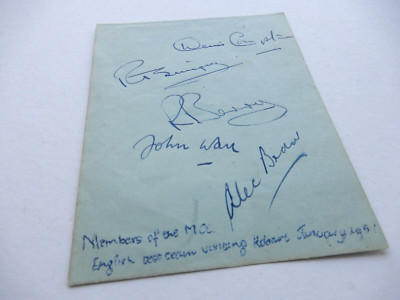 Denis Compton
R T Simpson
R Berry
John Warr
Alec Bedser
Members of the M.C.
English test team visiting Hobart January 1951